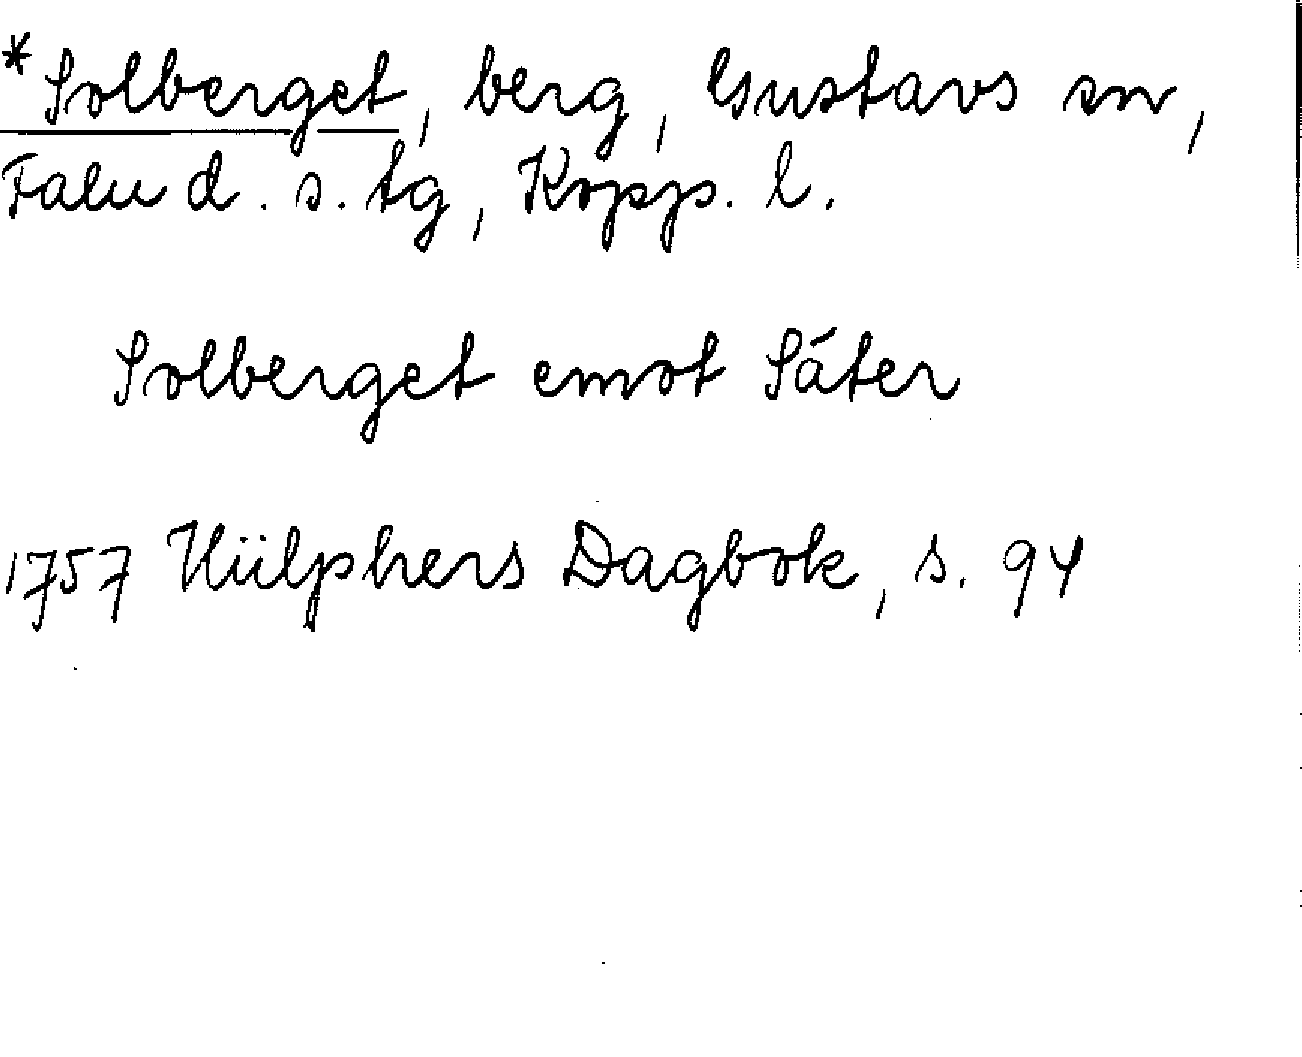 *Solberget, berg, Gustavs sn,
Falu d. s. tg, Kopp. l.
Solberget emot Säter
1757 Hülphers Dagbok, s. 94